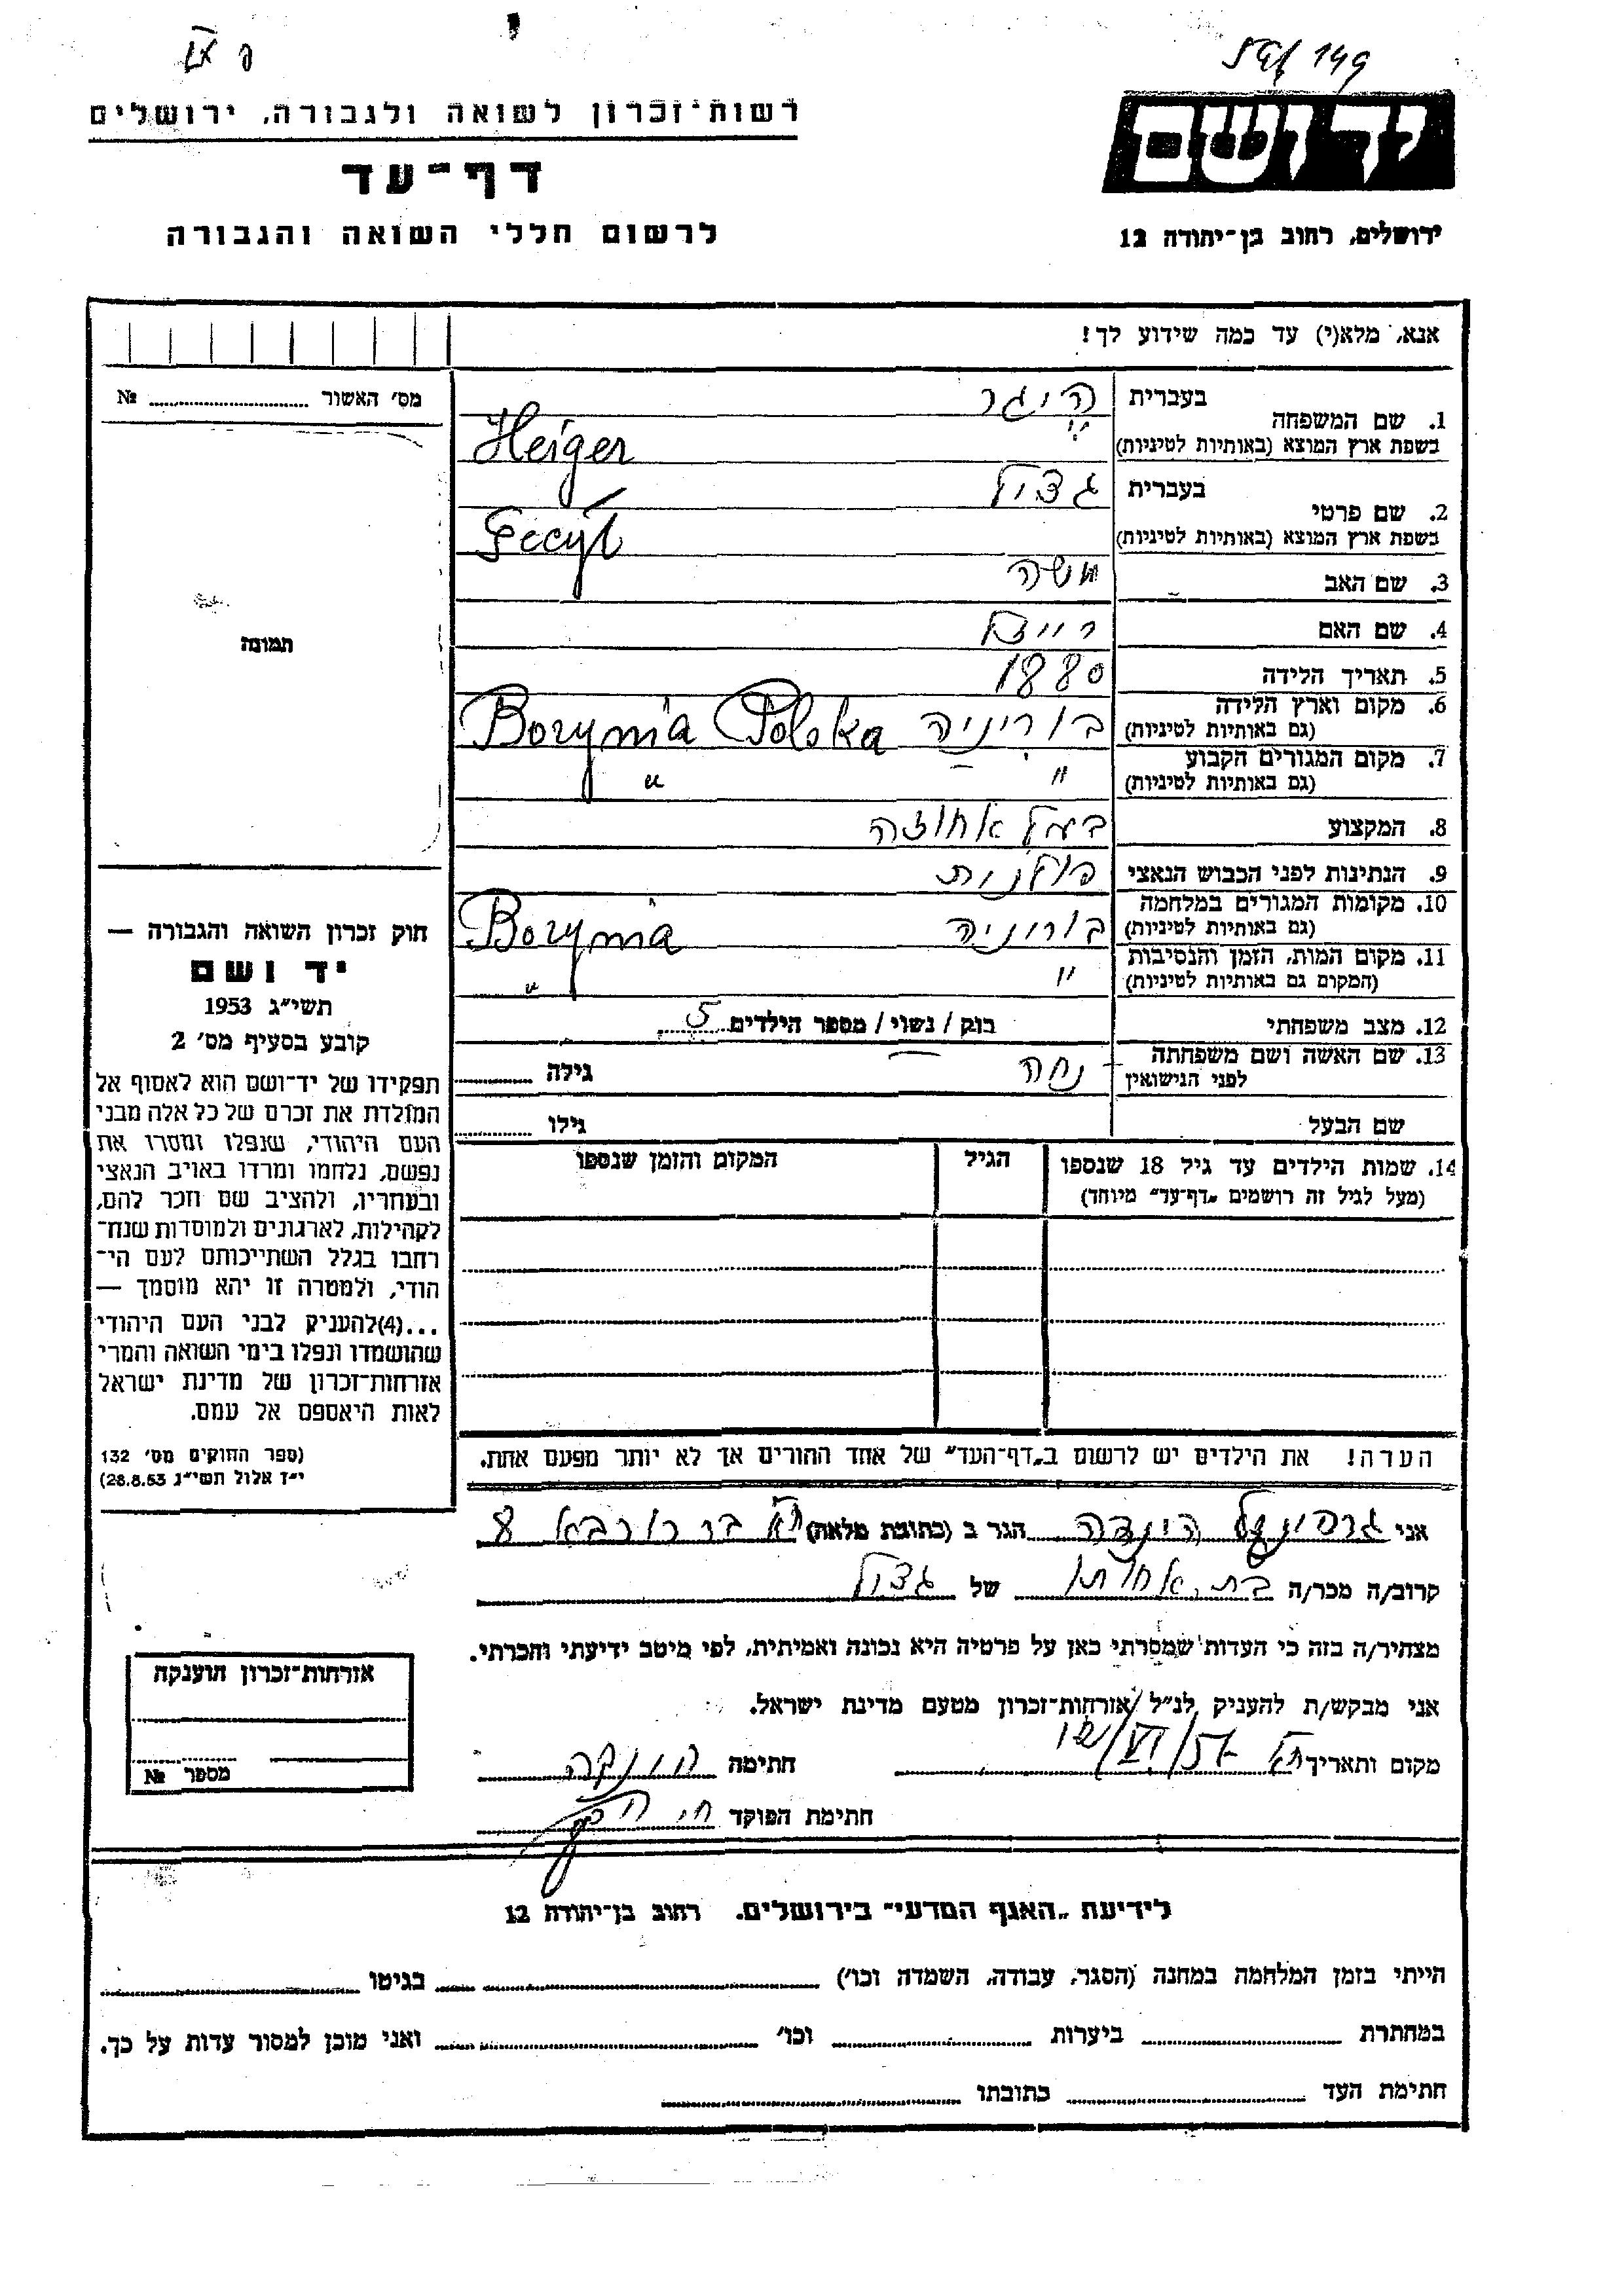 149
רשות־זכרון לשואה ולגבורה, ירושלים
יד ושם
דף־עד
ירושלים, רחוב בן־יהודה 12
לרשום חללי השואה והגבורה
אנא, מלא(י) עד כמה שידוע לך!
מס׳ האשור № 
1. שם המשפחה בעברית היגר
בשפת ארץ המוצא (באותיות לטיניות) Heiger
2. שם פרטי בעברית געציל
בשפת ארץ המוצא (באותיות לטיניות) Gecyl
3. שם האב משה
4. שם האם רייזל
5. תאריך הלידה 1880
6. מקום וארץ הלידה (גם באותיות לטיניות) בוריניה Borynia Polska
7. מקום המגורים הקבוע (גם באותיות לטיניות) " "
8. המקצוע בעל אחוזה
9. הנתינות לפני הכבוש הנאצי פולנית
10. מקומות המגורים במלחמה (גם באותיות לטיניות) בוריניה Borynia
11. מקום המות, הזמן והנסיבות (המקום גם באותיות לטיניות) " "
12. מצב משפחתי רוק / נשוי / מספר הילדים 5
13. שם האשה ושם משפחתה לפני הנישואין נחה גילה
שם הבעל גילו
14. שמות הילדים עד גיל 18 שנספו (מעל לגיל זה רושמים „דף־עד״ מיוחד) הגיל המקום והזמן שנספו
הערה! את הילדים יש לרשום ב„דף־העד״ של אחד ההורים אך לא יותר מפעם אחת.
תמונה
חוק זכרון השואה והגבורה —
יד ושם
תשי״ג 1953
קובע בסעיף מס׳ 2
תפקידו של יד־ושם הוא לאסוף אל
המולדת את זכרם של כל אלה מבני
העם היהודי, שנפלו ומסרו את
נפשם, נלחמו ומרדו באויב הנאצי
ובעוזריו, ולהציב שם וזכר להם,
לקהילות, לארגונים ולמוסדות שנח־
רבו בגלל השתייכותם לעם הי־
הודי, ולמטרה זו יהא מוסמך —
...(4)להעניק לבני העם היהודי
שהושמדו ונפלו בימי השואה והמרי
אזרחות־זכרון של מדינת ישראל
לאות היאספם אל עמם.
(ספר החוקים מס׳ 132
י״ז אלול תשי״ג 28.8.53)
אני הינדה הגר ב (כתובת מלאה) ת״א 8
קרוב/ה מכר/ה בת אחותו של געציל
מצהיר/ה בזה כי העדות שמסרתי כאן על פרטיה היא נכונה ואמיתית, לפי מיטב ידיעתי והכרתי.
אני מבקש/ת להעניק לנ״ל אזרחות־זכרון מטעם מדינת ישראל.
מקום ותאריך ת״א חתימה
חתימת הפוקד
אזרחות־זכרון הוענקה
מספר №
לידיעת „האגף המדעי״ בירושלים, רחוב בן־יהודה 12
הייתי בזמן המלחמה במחנה (הסגר, עבודה, השמדה וכו׳) בגיטו
במחתרת ביערות וכו׳ ואני מוכן למסור עדות על כך.
חתימת העד כתובתו